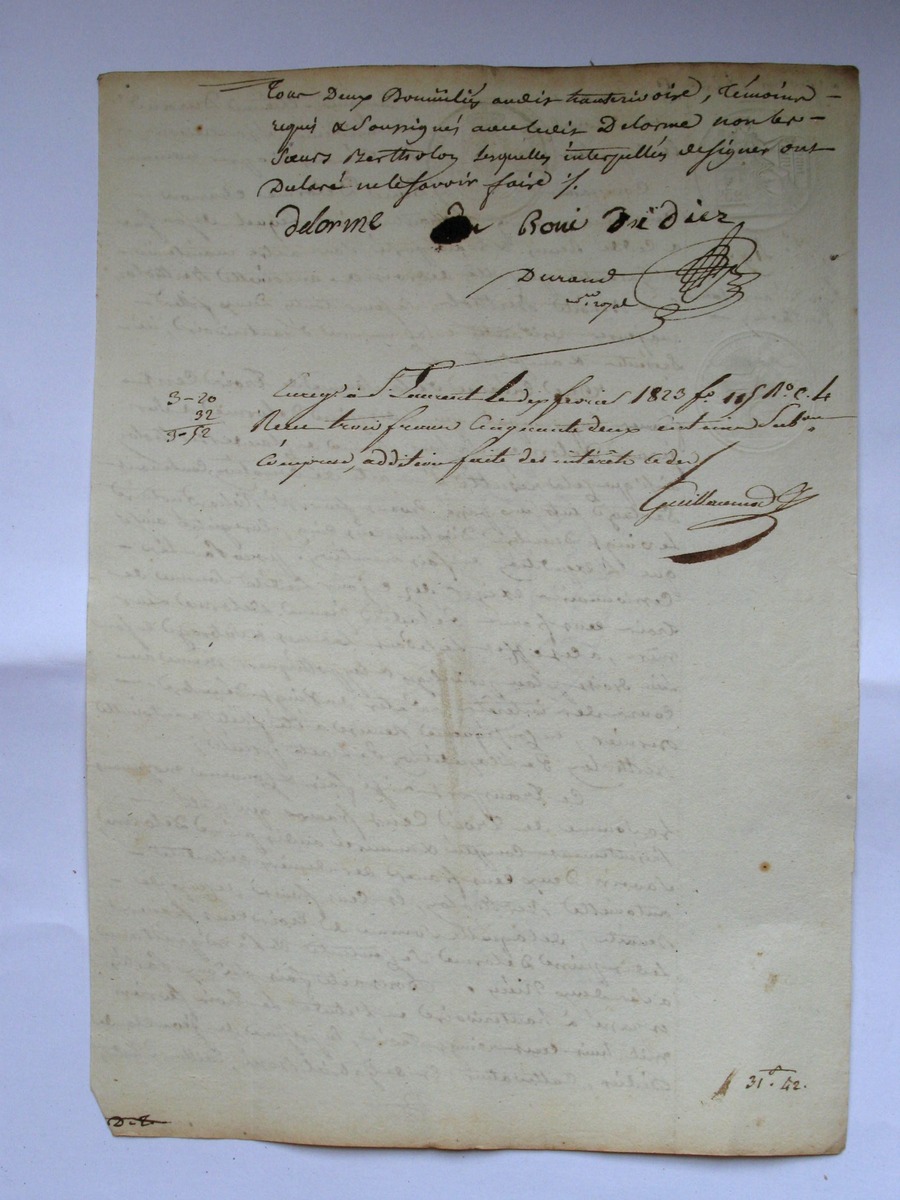 tous deux Domiciliés audit hauterivoire, Témoins
requis & Soussignés avec ledit Delorme non les
Sœurs Bertholon lesquelles interpellés de signer ont
Déclaré ne le Savoir faire ./.
delorme Boué Didier
Durand
nore. royal
Enregé. à St. Laurent Le dix février 1823 fo. 115 Ro. c. 4
3-20
32
3-52
Reçu trois francs Cinquante deux centimes Subon.
Comprise, addition faite des intérêts
Guillaumod
31f. 42.
D.t.